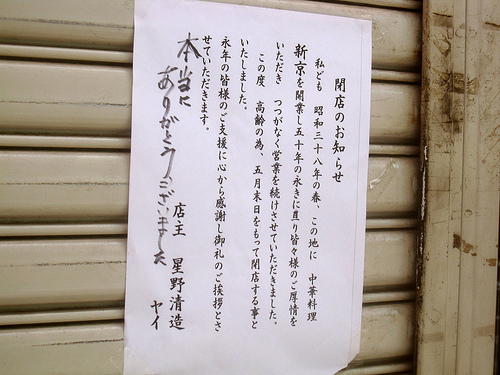 閉店のお知らせ
私ども　昭和三十八年の春、この地に　中華料理
新京を開業し五十年の永きに亘り皆々様のご厚情を
いただき　つつがなく営業を続けさせていただきました。
この度　高齢の為、五月末日をもって閉店する事と
いたしました。
永年の皆様のご支援に心から感謝し御礼のご挨拶とさ
せていただきます。
店主　星野清造
ヤイ
本当に
ありがとうございました